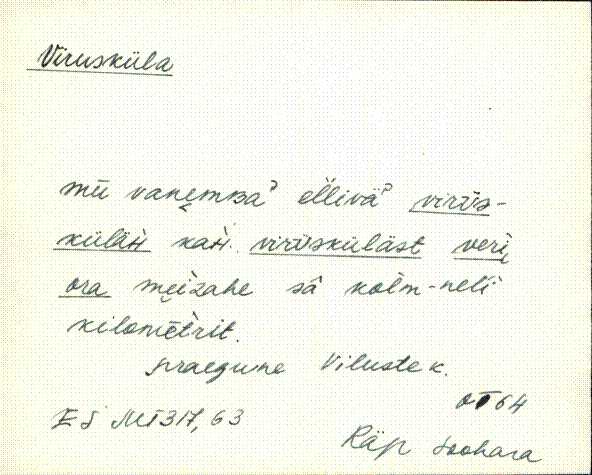 Virusküla
mū vanemba' ēllivä' virūs-
külän kan. virūsküläst veri
ora meizahe sā kolm-neli
kilomētrit.
praegune Viluste k.
OT 64
ES MT 317, 63
Räp Soohara